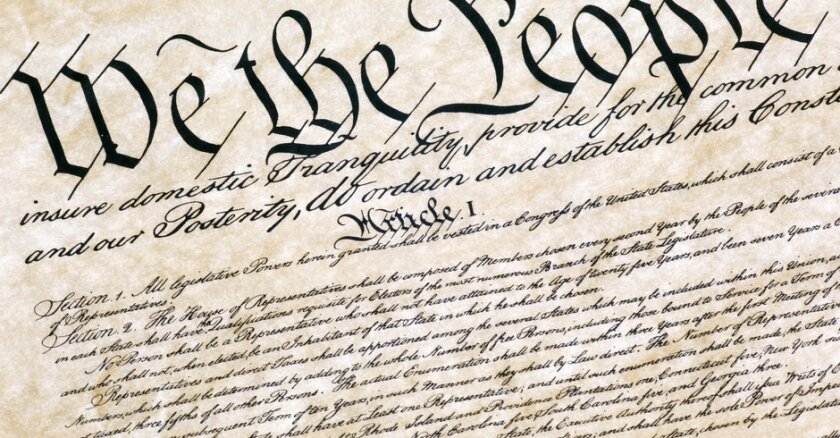 We the People
insure domestic Tranquility, provide for the common
and our Posterity, do ordain and establish this Const
Article I.
Section 1. All legislative Powers herein granted shall be vested in a Congress of the United States, which shall consist of a
of Representatives.
Section 2. The House of Representatives shall be composed of Members chosen every second Year by the People of the several
in each State shall have the Qualifications requisite for Electors of the most numerous Branch of the State Legislature.
No Person shall be a Representative who shall not have attained to the Age of twenty five Years, and been seven Years a
and who shall not, when elected, be an Inhabitant of that State in which he shall be chosen.
Representatives and direct Taxes shall be apportioned among the several States which may be included within this Union,
Numbers, which shall be determined by adding to the whole Number of free Persons, including those bound to Service for a Term of
three fifths of all other Persons. The actual Enumeration shall be made within three Years after the first Meeting of
subsequent Term of ten Years, in such Manner as they shall by Law direct. The Number of Representatives
shall have at Least one Representative; and until such enumeration shall be made, the State
Rhode Island and Providence Plantations one, Connecticut five, New York
North Carolina five, South Carolina five, and Georgia three.
State, the Executive Authority thereof shall issue Writs of
and shall have the sole Power of Imp
State, chosen by the Legislature